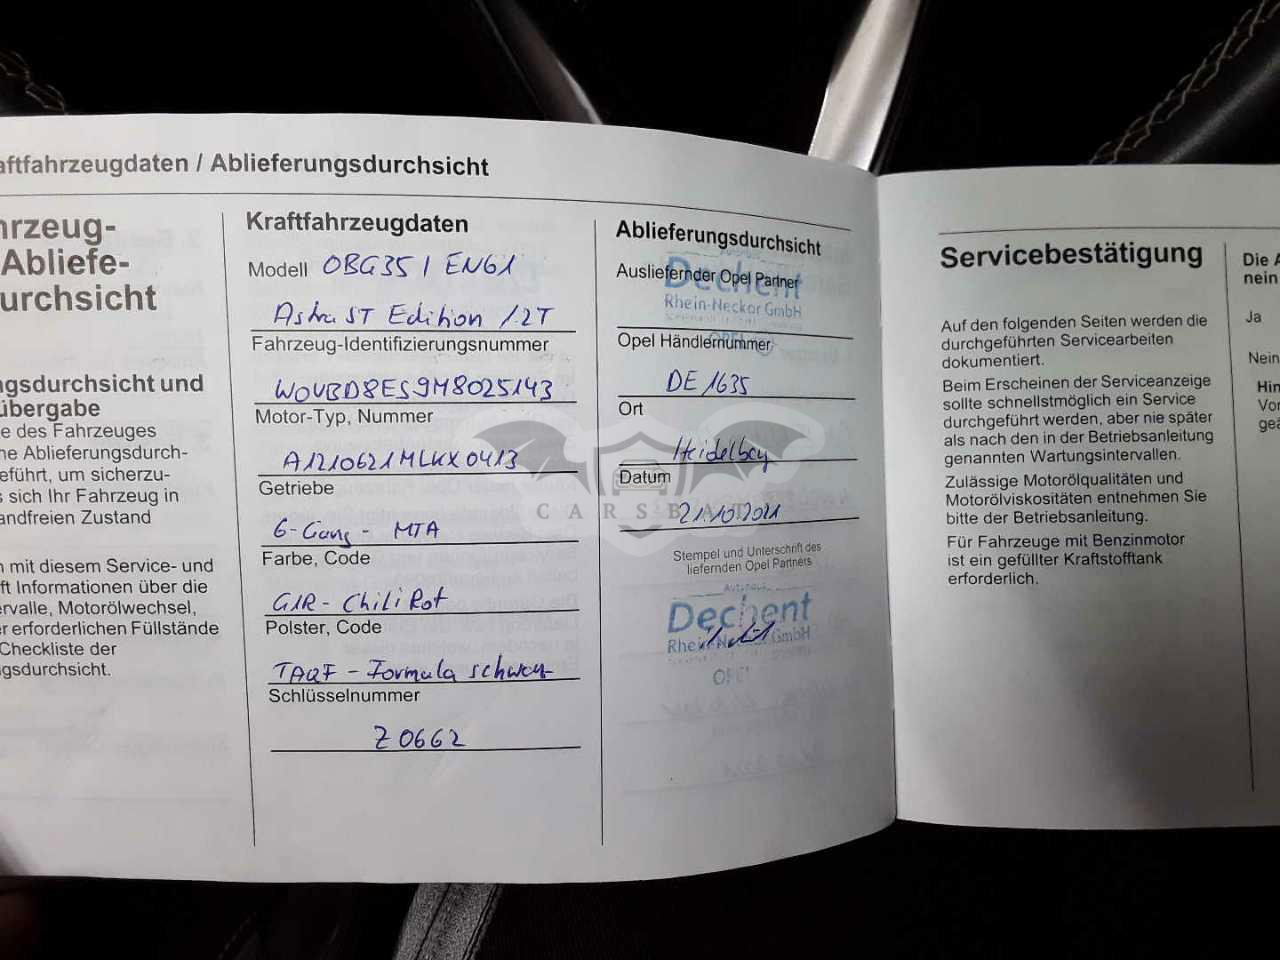 aftfahrzeugdaten / Ablieferungsdurchsicht
hrzeug-
Abliefe-
urchsicht
ngsdurchsicht und
übergabe
e des Fahrzeuges
ne Ablieferungsdurch-
eführt, um sicherzu-
s sich Ihr Fahrzeug in
andfreien Zustand
n mit diesem Service- und
ft Informationen über die
ervalle, Motorölwechsel,
er erforderlichen Füllstände
Checkliste der
ngsdurchsicht.
Kraftfahrzeugdaten
Modell OBG35 / EN61
Astra ST Edition 1.2T
Fahrzeug-Identifizierungsnummer
W0VBD8ES9M8025143
Motor-Typ, Nummer
A1210621MLKX0413
Getriebe
6-Gang - MTA
Farbe, Code
G1R - Chili Rot
Polster, Code
TAQF - Formula schwarz
Schlüsselnummer
Z0662
Ablieferungsdurchsicht
Ausliefernder Opel Partner
Dechent
Rhein-Neckar GmbH
Opel Händlernummer
OPEL
DE 1635
Ort
Heidelberg
Datum
21.10.2021
Stempel und Unterschrift des
liefernden Opel Partners
Autohaus
Dechent
Rhein-Neckar GmbH
OPEL
CARSBAT
Servicebestätigung
Auf den folgenden Seiten werden die
durchgeführten Servicearbeiten
dokumentiert.
Beim Erscheinen der Serviceanzeige
sollte schnellstmöglich ein Service
durchgeführt werden, aber nie später
als nach den in der Betriebsanleitung
genannten Wartungsintervallen.
Zulässige Motorölqualitäten und
Motorölviskositäten entnehmen Sie
bitte der Betriebsanleitung.
Für Fahrzeuge mit Benzinmotor
ist ein gefüllter Kraftstofftank
erforderlich.
Die A
nein
Ja
Nein
Hin
Vor
geä